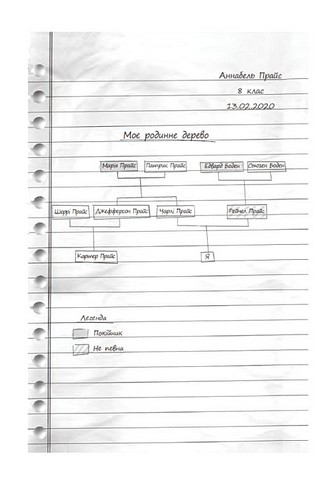 Аннабель Прайс
8 клас
13.02.2020
Моє родинне дерево
Марія Прайс Патрик Прайс Едвард Воден Стюзен Воден
Шеррі Прайс Джефферсон Прайс Чарлі Прайс Рейчел Прайс
Картер Прайс Я
Легенда
Покійник
Не певни